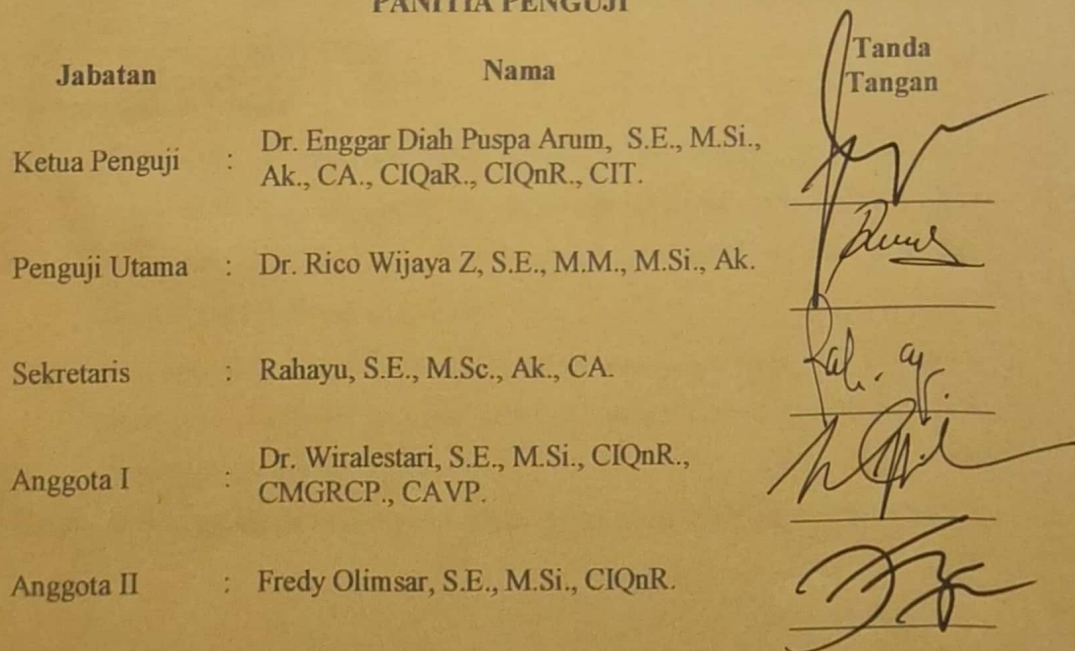 PANITIA PENGUJI
Jabatan Nama Tanda Tangan
Ketua Penguji : Dr. Enggar Diah Puspa Arum, S.E., M.Si.,
Ak., CA., CIQaR., CIQnR., CIT.
Penguji Utama : Dr. Rico Wijaya Z, S.E., M.M., M.Si., Ak.
Sekretaris : Rahayu, S.E., M.Sc., Ak., CA.
Anggota I : Dr. Wiralestari, S.E., M.Si., CIQnR.,
CMGRCP., CAVP.
Anggota II : Fredy Olimsar, S.E., M.Si., CIQnR.